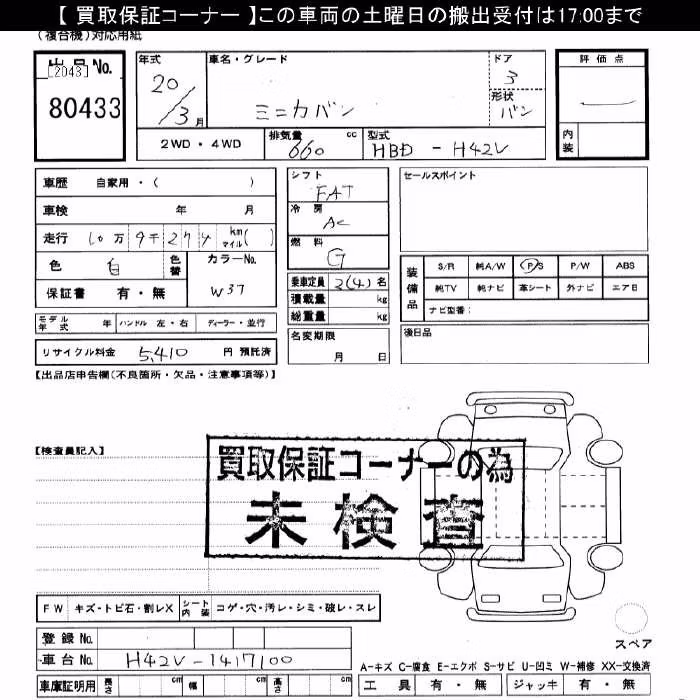 【 買取保証コーナー 】この車両の土曜日の搬出受付は17:00まで
(複合機)対応用紙
出品No.
[2043]
80433
年式
20/3月
車名・グレード
ミニカバン
ドア
3
形状
バン
評価点
内装
2WD・4WD
排気量 660 cc
型式 HBD-H42V
車歴 自家用・( )
車検 年 月
走行 10万9千274 km マイル( )
色 白 色替
カラーNo. W37
保証書 有・無
モデル年式 年 ハンドル 左・右 ディーラー・並行
リサイクル料金 5,410 円 預託済
シフト
FAT
冷房
AC
燃料
G
乗車定員 2(4)名
積載量 kg
総重量 kg
名変期限
月 日
セールスポイント
装備品
S/R 純A/W P/S P/W ABS
純TV 純ナビ 革シート 外ナビ エアB
ナビ型番:
後日品
【出品店申告欄(不良箇所・欠品・注意事項等)】
【検査員記入】
買取保証コーナーの為
未検査
FW キズ・トビ石・割レX シート内装 コゲ・穴・汚レ・シミ・破レ・スレ
登録No.
車台No. H42V-1417100
車庫証明用 長さ cm 幅 cm 高さ cm
スペア
A-キズ C-腐食 E-エクボ S-サビ U-凹ミ W-補修 XX-交換済
工具 有・無 ジャッキ 有・無